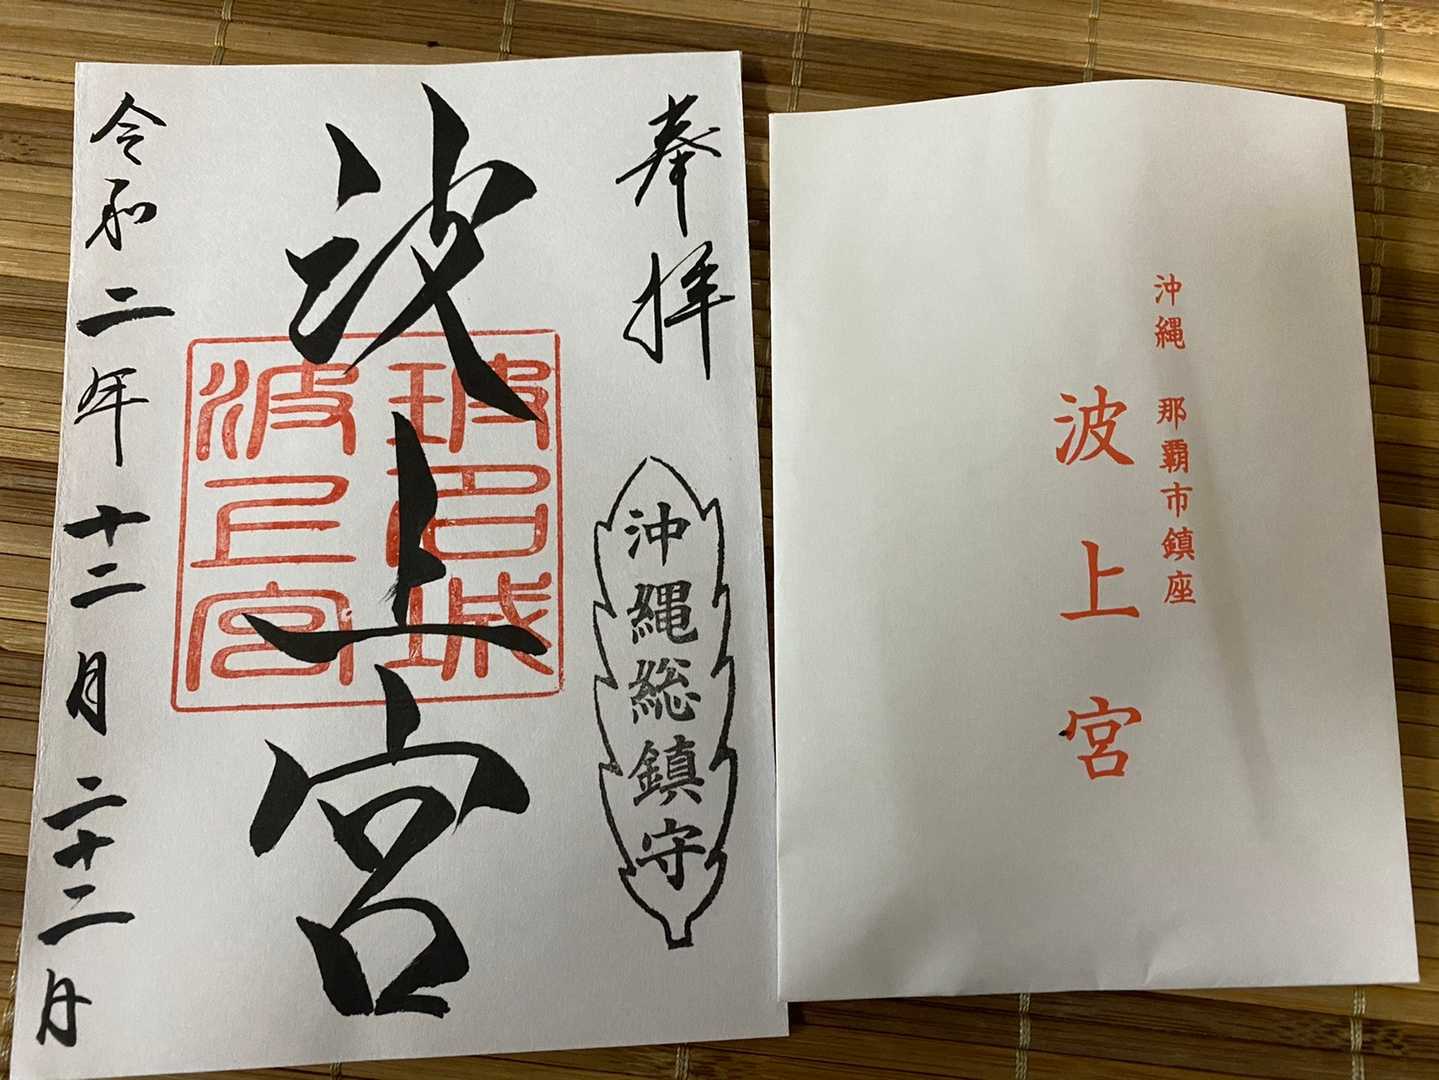 奉拝
沖縄総鎮守
波上宮
波上宮
令和二年十二月二十二日
沖縄 那覇市鎮座
波上宮